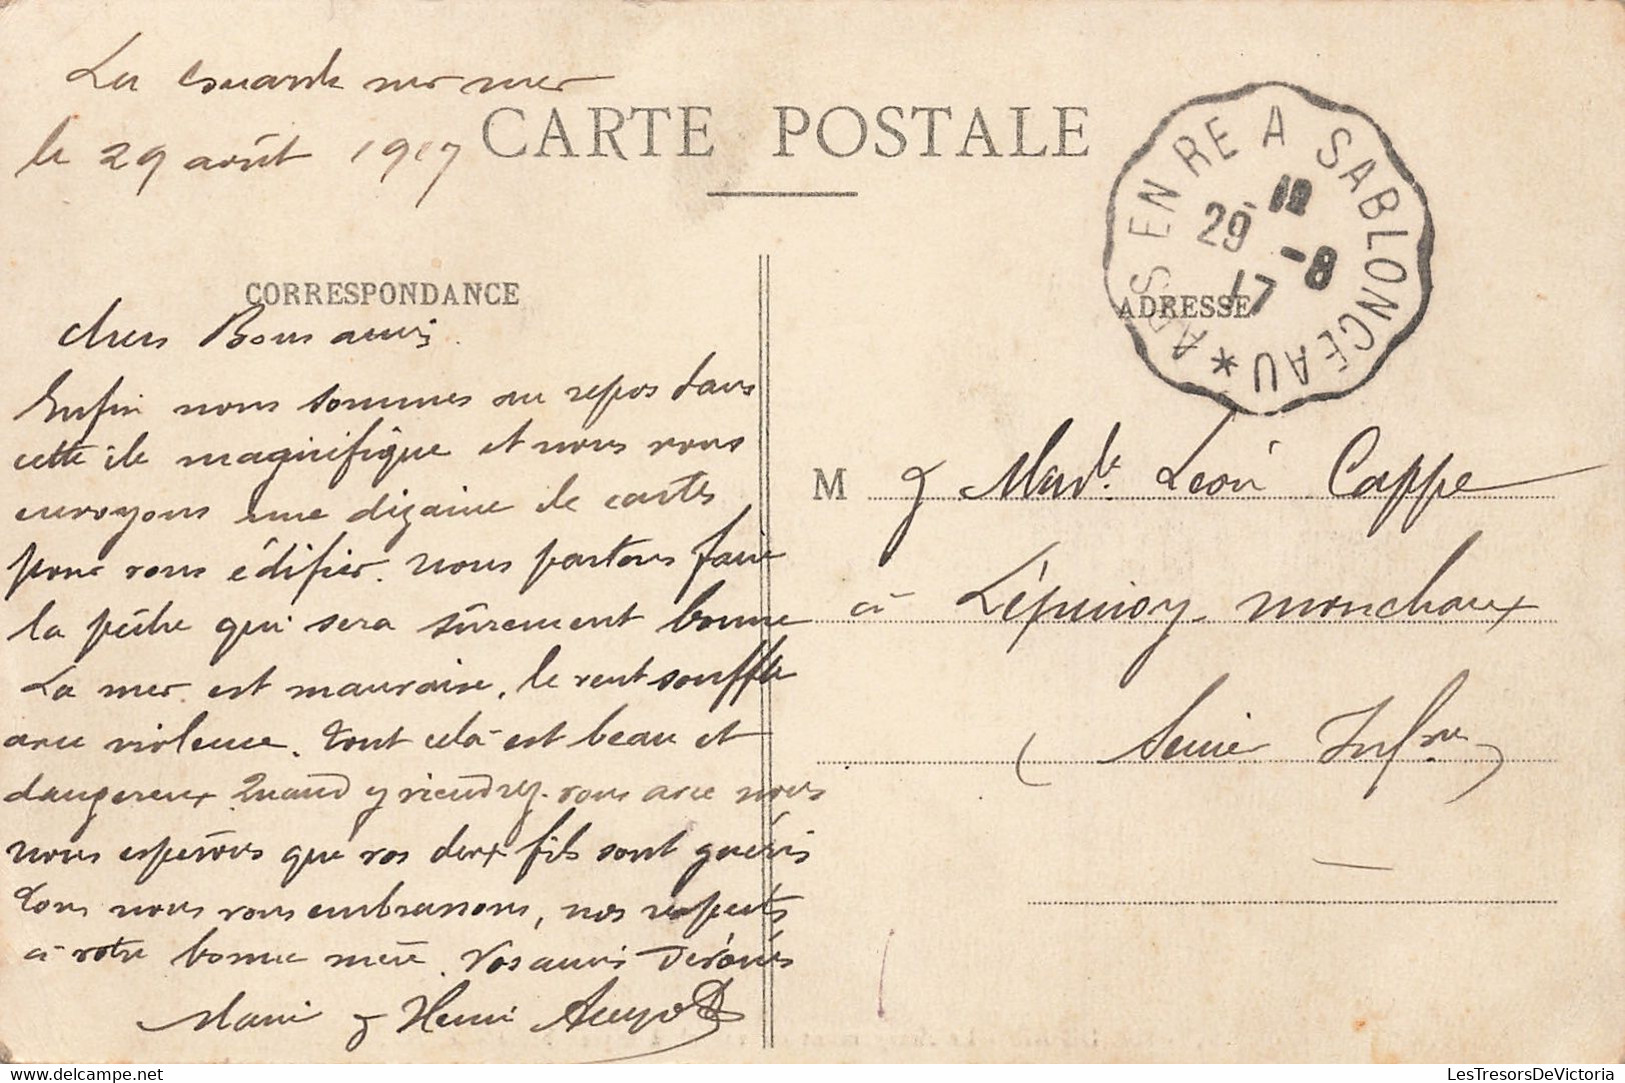 La Couarde sur mer
le 29 août 1917
CARTE POSTALE
ARS EN RE A SABLONCEAU *
29 - 8
17
CORRESPONDANCE
ADRESSE
chers Bons amis.
Enfin nous sommes au repos dans
cette île magnifique et nous vous
envoyons une dizaine de cartes
pour vous édifier. nous partons faire
la pêche qui sera sûrement bonne
La mer est mauvaise, le vent souffle
avec violence. tout celà est beau et
dangereux Quand y viendrez-vous avec nous
nous espérons que vos deux fils sont guéris
tous nous vous embrassons, nos respects
à votre bonne mère. Vos amis Dévoués
Marie & Henri
M & Made Léon Cappe
à L'épinoy-monchaux
(Seine Infre)
LesTresorsDeVictoria
http://www.delcampe.net
LesTresorsDeVictoria